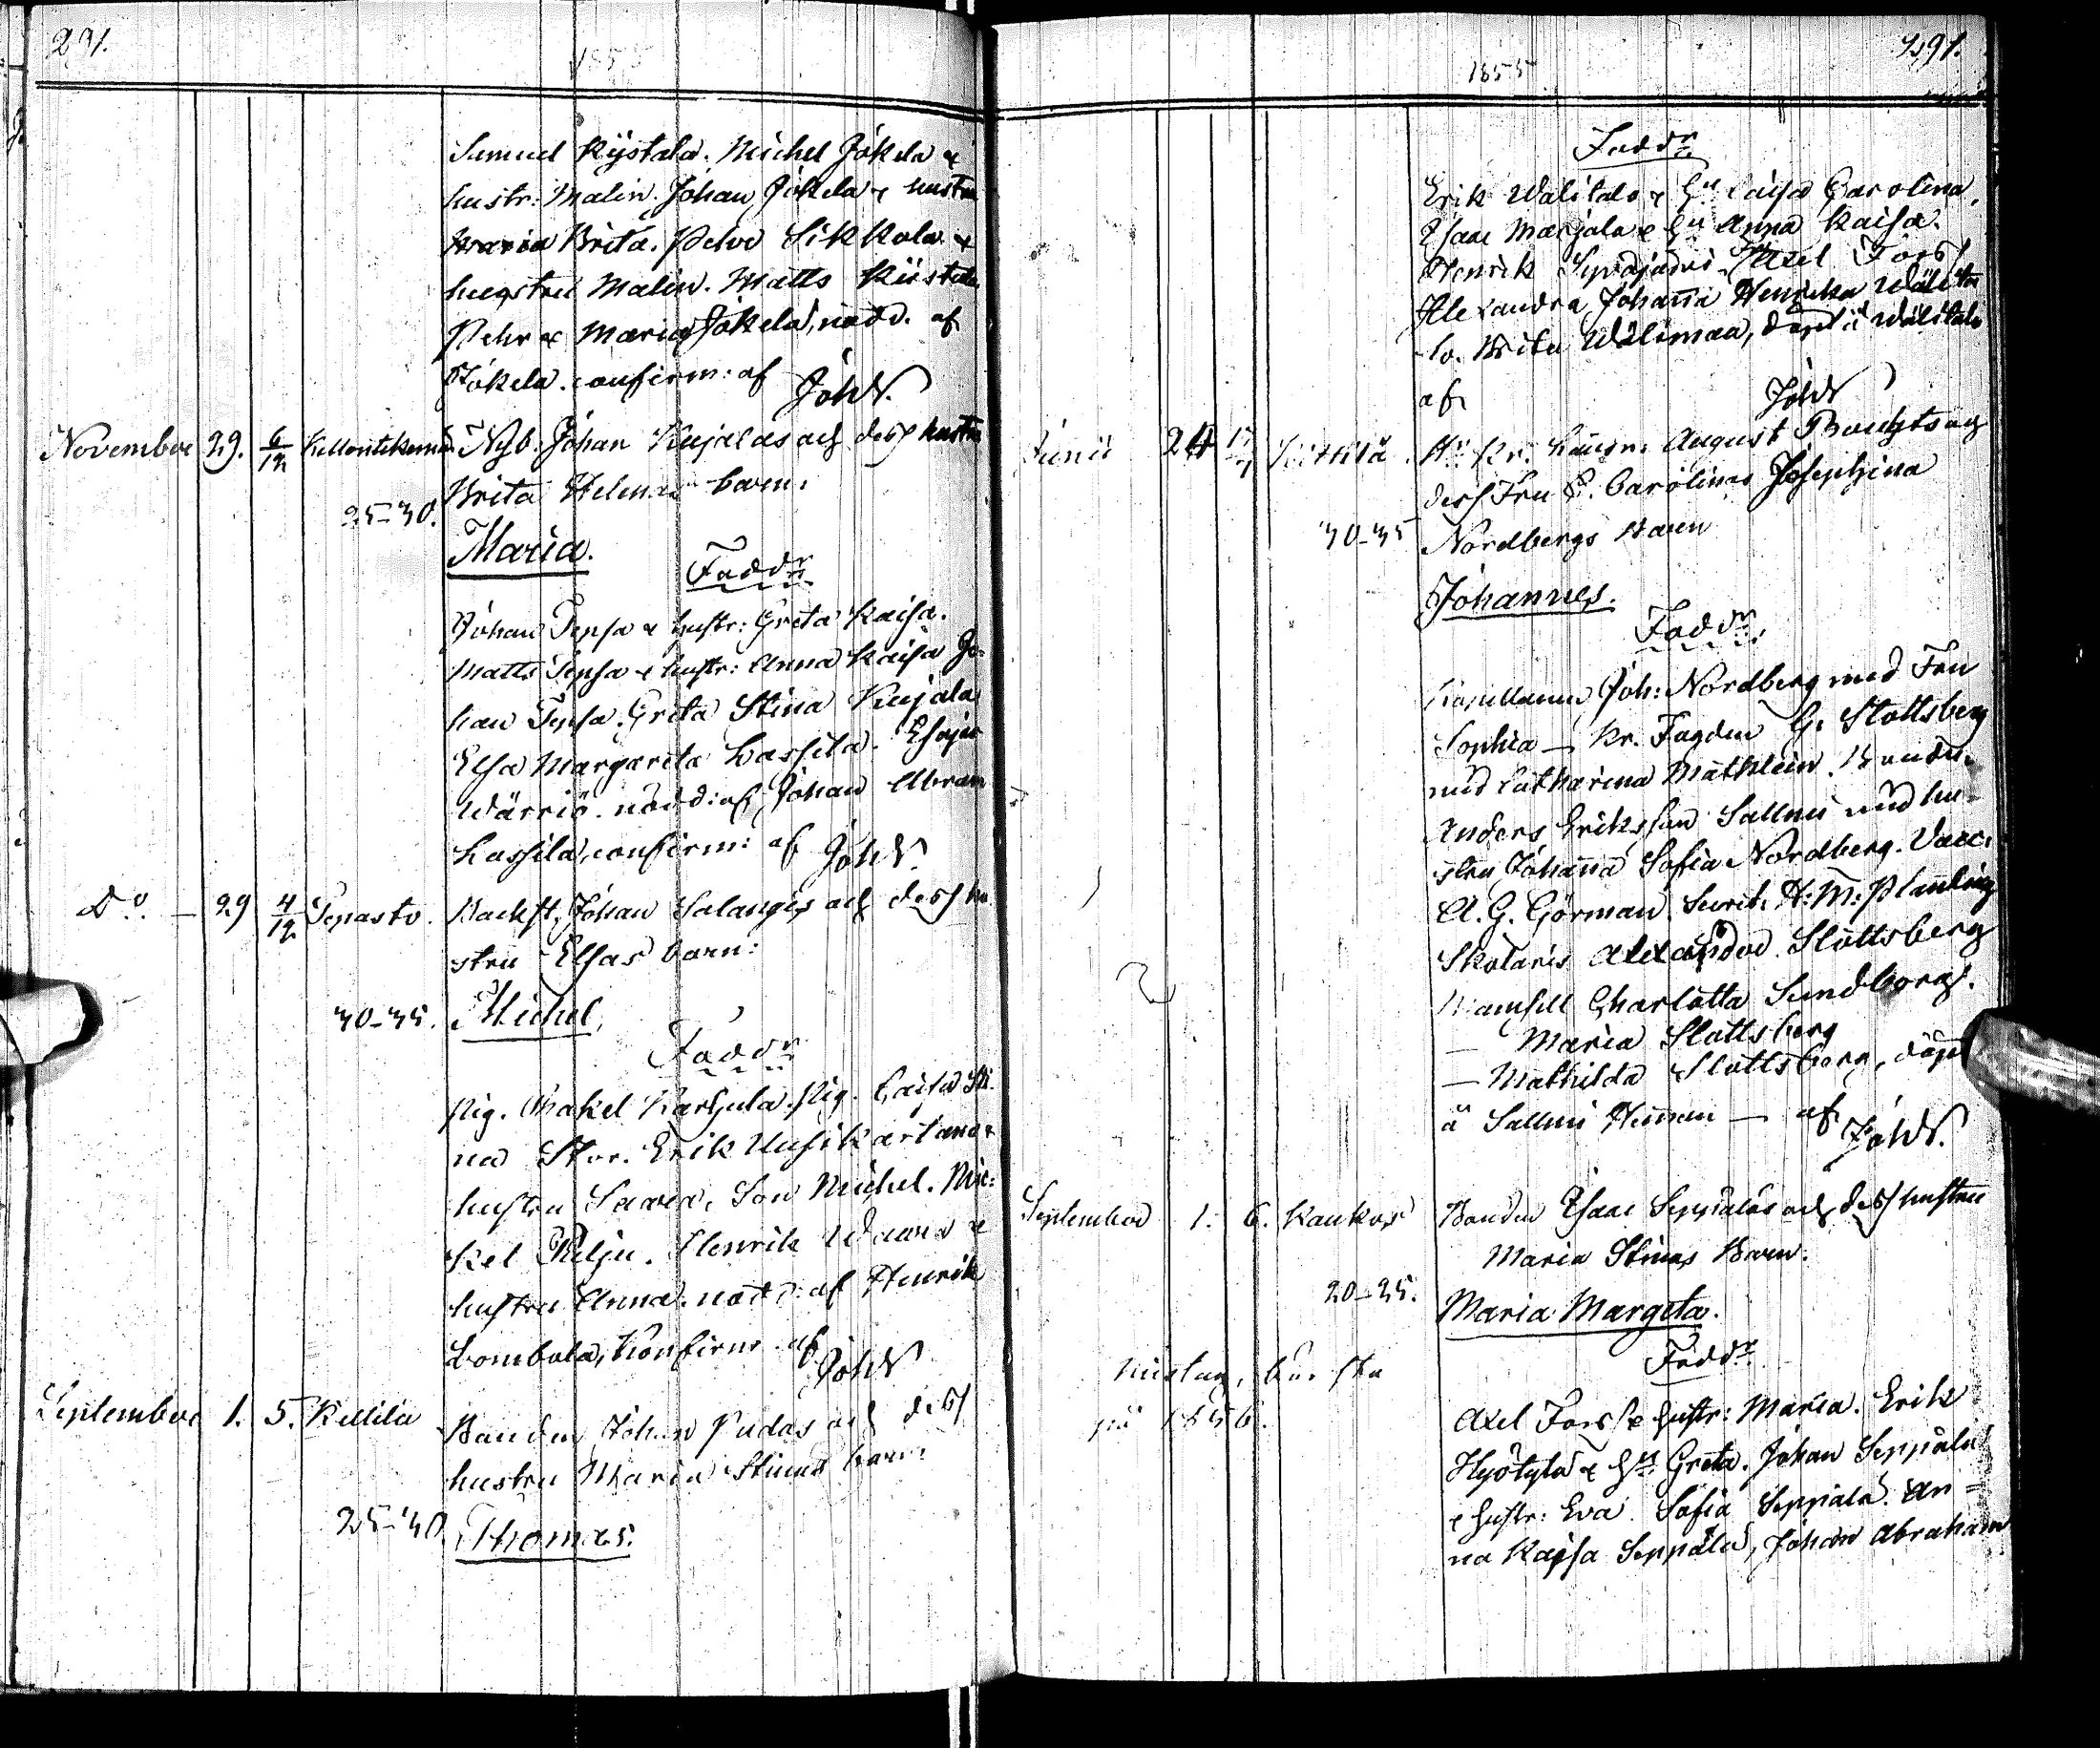 291.
1855
Samuel Kystala. Michel Jokela &
hustr: Malin. Johan Jokela & hustru
Maria Brita. Petter Sikkala &
hustru Malin. Matts Kiistala
Pehr & Maria Jokela, nödd. af
Jokela. confirm: af JohN.
November 29. 6/12 Nyb. Johan Kujalas och dess hustru
Brita Helenas barn.
25-30.
Maria.
Faddr
Johan Tepsa & hustr: Greta Kaisa.
Matts Tepsa & hustr: Anna Kaisa Jo-
han Tepsa. Greta Stina Kujala
Elsa Margareta Lassila. Esajas
Wärriö. nödd: af Johan Abram
Lassila, confirm: af JohN.
Do — 29 4/12 Tepasto. Backst. Johan Salangis och dess hu-
stru Elsas barn:
30-35. Michel,
Faddr
Pig. Rakel Karhula. Pig. Caisa Sti-
na Erik Uusikartano &
hustru Son Michel. Mic-
kel Henrik Waara &
hustru Anna. nödd: af Henrik
Lombola, Konfirm. af JohN
September 1. 5. Kittilä Bonden Johan Pudas och dess
hustru Maria Stinas barn:
25-30. Thomas.
291.
1855
Faddr
Erik Walitalo & Hu Caisa Carolina,
Isaac Marjala & Hu Anna Kaisa.
Henrik Axel Fors
Alexandra Johanna Henrika Wälita-
lo. Brita Wälimaa, döpt å Wälitalo
af JohN
Junii 24 Kittilä. Kr. Länsm. August Bouchts och
dess Fru E. Carolinas Josephina
30-35 Nordbergs Barn
Johannes.
Faddr.
Kapellanen Joh: Nordberg med Fru
Sophia — Kr. Fogden G. Slottsberg
med Catharina Mathlein. Bonden
Anders Eriksson Sallmi med hu-
stru Johanna Sofia Nordberg. Vacc.
A. G. Görman. H: M: Planting
Skolaris Alexander Slottsberg
Mamsell Charlotta Sundborg.
— Maria Slottsberg
— Mathilda Slottsberg, döpt
å Sallmi Heman — af JohN.
September 1. 6. Kaukos Bonden Isaac Seppäläs och dess hustru
Maria Stinas Barn.
20-25. Maria Margeta.
Faddr
på 1856.
Axel Fors & hustr: Maria. Erik
Hyötylä & Hu Greta. Johan Seppälä
& hustr: Eva. Sofia Seppälä. An-
na Kajsa Seppälä, Johan Abraham